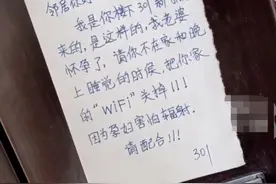 邻居你好
我是你楼下301新
来的,是这样的,我老婆
怀孕了,请你不在家和晚
上睡觉的时候,把你家
的“WiFi”关掉!!!
因为孕妇害怕辐射.
请配合!!!
301